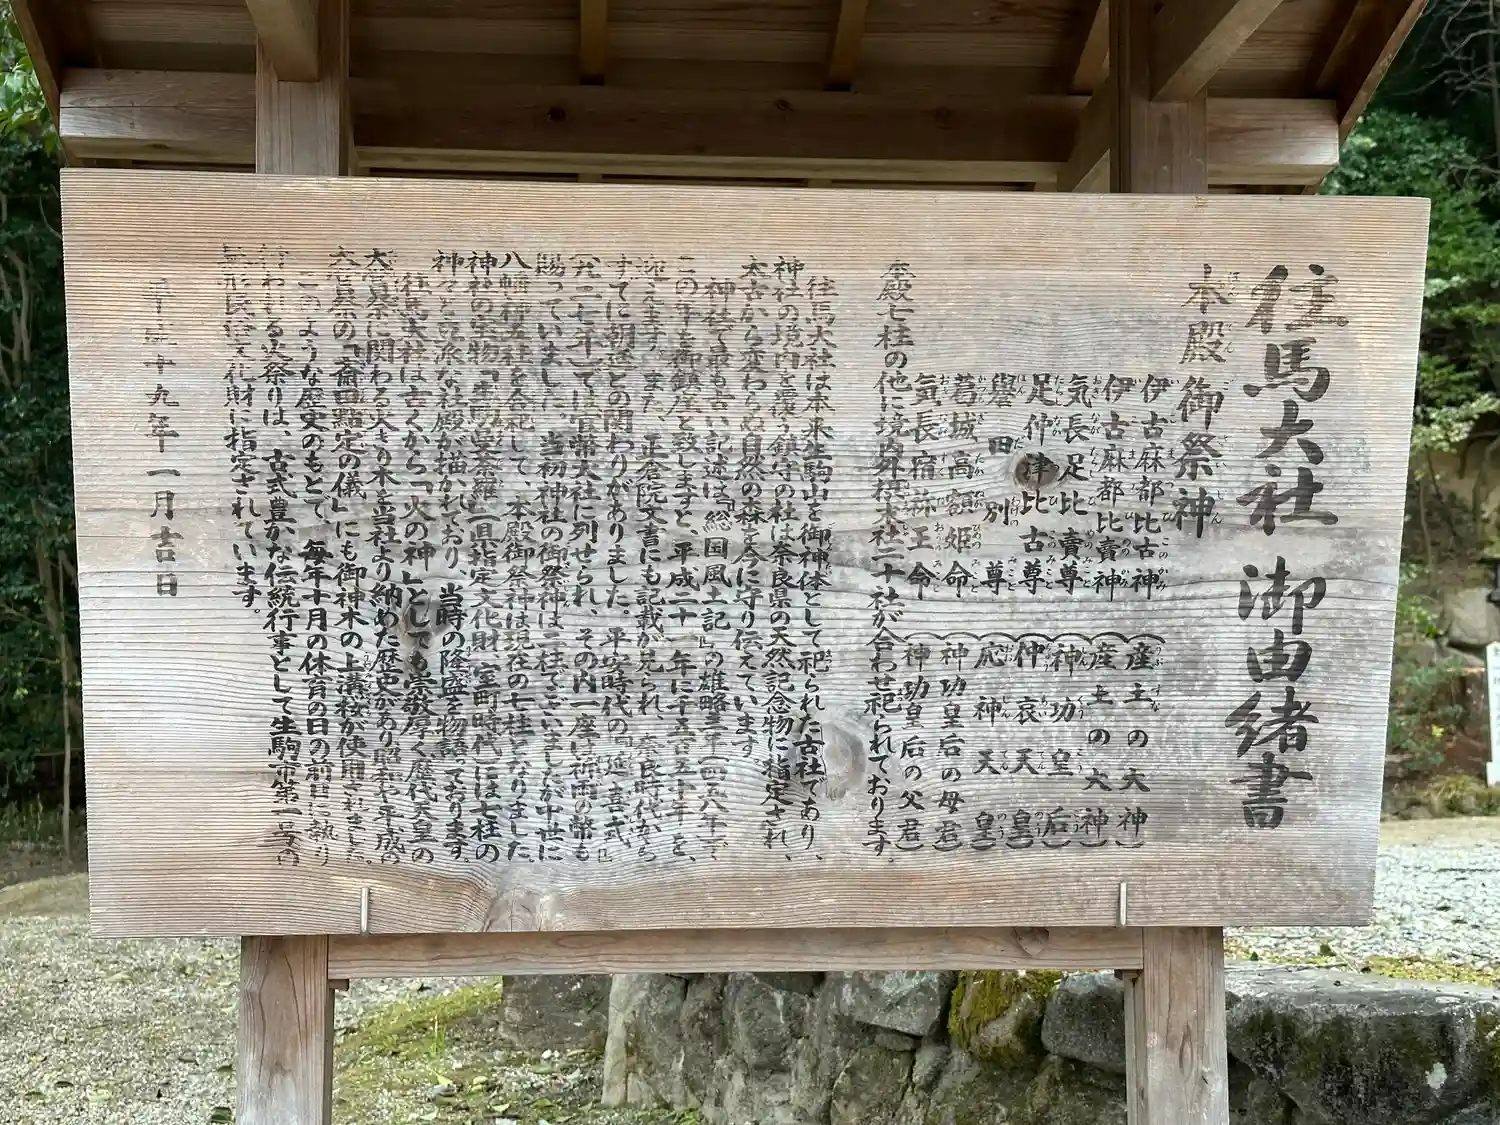 往馬大社 御由緒書
本殿 御祭神
伊古麻都比古神（産土の大神）
伊古麻都比賣神（産土の大神）
気長足比賣尊（神功皇后）
足仲津比古尊（仲哀天皇）
譽田別尊（応神天皇）
葛城高額姫命（神功皇后の母君）
気長宿祢王命（神功皇后の父君）
本殿七柱の他に境内外摂末社二十社が合わせ祀られております。
往馬大社は本来生駒山を御神体として祀られた古社であり、
神社の境内を覆う鎮守の社は奈良県の天然記念物に指定され、
太古から変わらぬ自然の森を今に守り伝えています。
神社で最も古い記述は『総国風土記』の雄略三年（四五八年）で
この年を御鎮座と致しますと、平成二十一年に千五百五十年を、
迎えます。また、正倉院文書にも記載が見られ、奈良時代から
すでに朝廷との関わりがありました。平安時代の『延喜式』
（九二七年）では官幣大社に列せられ、その内一座は祈雨の幣も
賜っていました。当初神社の御祭神は二柱でございましたが中世に
八幡神五社を合祀して、本殿御祭神は現在の七柱となりました。
神社の宝物「生駒曼荼羅」（県指定文化財 室町時代）には七柱の
神々と立派な社殿が描かれており、当時の隆盛を物語っております。
往馬大社は古くから「火の神」としても崇敬厚く歴代天皇の
大嘗祭に関わる火きり木を当社より納めた歴史があり昭和や平成の
大嘗祭の「斎田點定の儀」にも御神木の上溝桜が使用されました。
このような歴史のもとで、毎年十月の体育の日の前日に執り
行われる火祭りは、古式豊かな伝統行事として生駒市第一号の
無形民俗文化財に指定されています。
平成十九年一月吉日